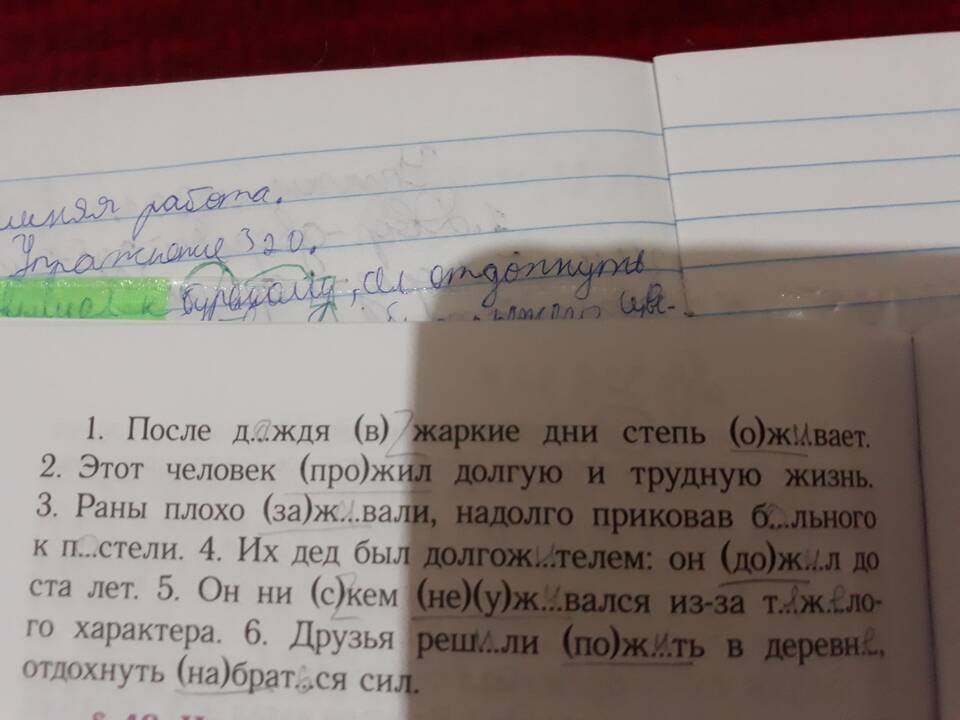 работа.
Упражнение 320.
к отдохнуть
1. После д.а.ждя (в) жаркие дни степь (о)ж.и.вает.
2. Этот человек (про)жил долгую и трудную жизнь.
3. Раны плохо (за)ж.и.вали, надолго приковав б...льного
к п...стели. 4. Их дед был долгож.и.телем: он (до)ж.и.л до
ста лет. 5. Он ни (с)кем (не)(у)ж.и.вался из-за т.я.ж.е.ло-
го характера. 6. Друзья реш.и.ли (по)ж.и.ть в деревн.е,
отдохнуть (на)брат.ь.ся сил.